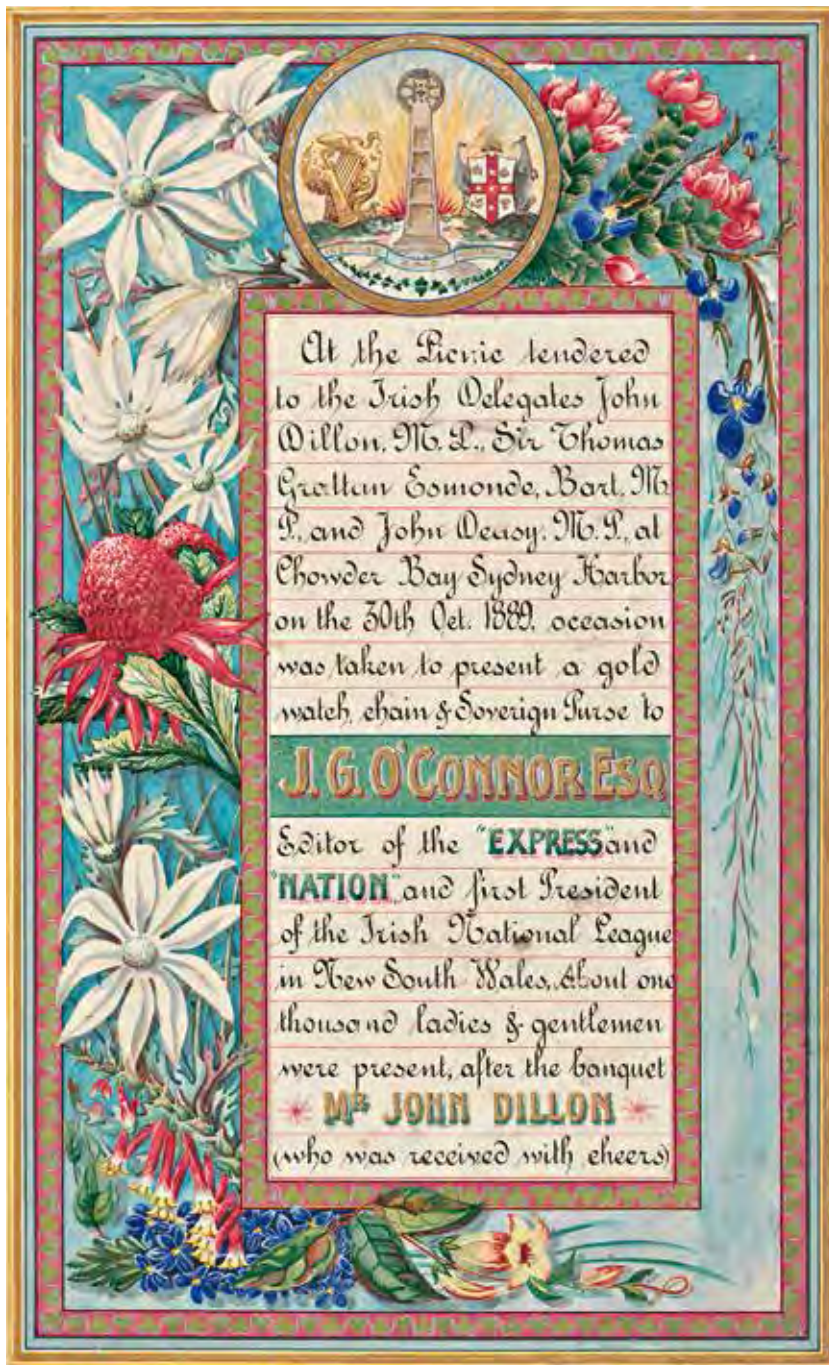 At the Picnic tendered
to the Irish Delegates John
Dillon, M.P., Sir Thomas
Grattan Esmonde, Bart. M.
P., and John Deasy, M.P., at
Chowder Bay Sydney Harbor
on the 30th Oct. 1889, occasion
was taken to present a gold
watch, chain & Soverign Purse to
J. G. O'CONNOR ESQ
Editor of the "EXPRESS" and
"NATION", and first President
of the Irish National League
in New South Wales, About one
thousand ladies & gentlemen
were present, after the banquet
MR JOHN DILLON
(who was received with cheers)